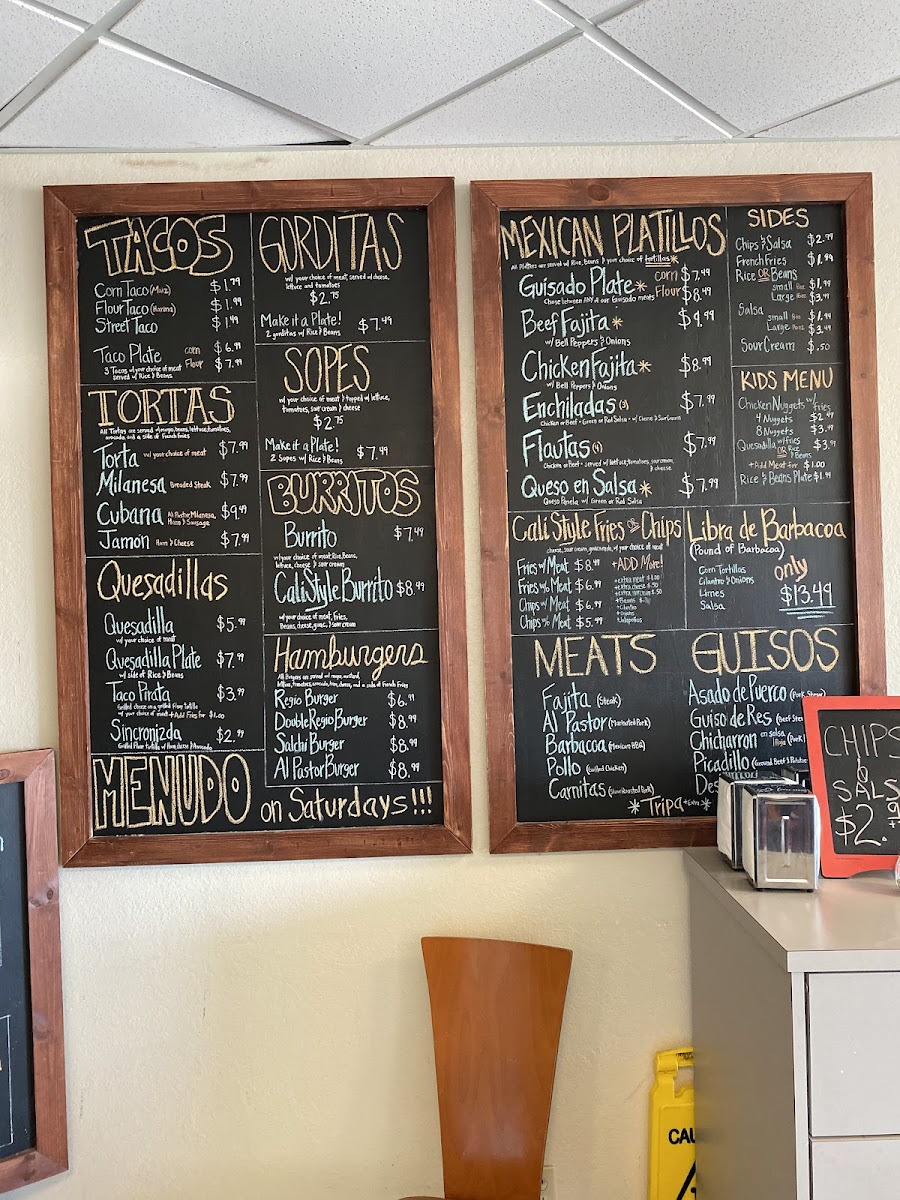 TACOS
Corn Taco (Maiz) $1.79
Flour Taco (Harina) $1.99
Street Taco $1.99
Taco Plate corn $6.99
Flour $7.99
3 Tacos w/your choice of meat
served w/ Rice & Beans
TORTAS
Torta w/ your choice of meat $7.99
Milanesa Breaded Steak $7.99
Cubana Al Pastor, Milanesa,
Ham & Sausage $9.49
Jamon Ham & Cheese $7.99
Quesadillas
Quesadilla $5.99
w/ your choice of meat
Quesadilla Plate $7.99
w/ side of Rice & Beans
Taco Pirata $3.99
w/ your choice of meat +Add Fries for $1.00
Sincronizda $2.99
MENUDO on Saturdays!!!
GORDITAS
w/ your choice of meat, served w/ cheese,
lettuce and tomatoes
$2.75
Make it a Plate! $7.49
2 gorditas w/ Rice & Beans
SOPES
w/ your choice of meat & topped w/ lettuce,
tomatoes, sour cream & cheese
$2.75
Make it a Plate! $7.49
2 Sopes w/ Rice & Beans
BURRITOS
Burrito $7.49
w/ your choice of meat, Rice, Beans,
lettuce, cheese & sour cream
Cali Style Burrito $8.49
w/ your choice of meat, Fries,
Beans, cheese, guac, & sour cream
Hamburgers
Regio Burger $6.99
Double Regio Burger $8.99
Salchi Burger $8.99
Al Pastor Burger $8.99
MEXICAN PLATILLOS
All Platters are served w/ Rice, Beans & your choice of tortillas*
Guisado Plate* corn $7.49
Flour $8.49
Chose between ANY of our Guisado meats
Beef Fajita* $9.99
w/ Bell Peppers & Onions
Chicken Fajita* $8.99
w/ Bell Peppers & Onions
Enchiladas (3) $7.99
Chicken or Beef - Green or Red Salsa - w/ Cheese & Sour Cream
Flautas (4) $7.99
Chicken or Beef - served w/ lettuce, tomatoes, sour cream,
& cheese
Queso en Salsa* $7.99
Queso Panela w/ Green or Red Salsa
SIDES
Chips & Salsa $2.99
French Fries $1.99
Rice OR Beans
small 8oz $1.99
Large 16oz $3.99
Salsa small 8oz $1.99
Large 16oz $3.49
Sour Cream $.50
KIDS MENU
Chicken Nuggets w/ Fries
4 Nuggets $2.99
8 Nuggets $3.99
Quesadilla w/ Fries $3.99
OR Rice
& Beans
+Add Meat for $1.00
Rice & Beans Plate $1.99
Cali Style Fries OR Chips
cheese, sour cream, guacamole, w/ your choice of meat
Fries w/ Meat $8.99
Fries w/o Meat $6.99
Chips w/ Meat $6.99
Chips w/o Meat $5.99
+ADD More!
+extra meat $1.00
+extra cheese $.50
+extra sour cream $.50
Libra de Barbacoa
(Pound of Barbacoa)
Corn Tortillas
Cilantro & Onions
Limes
Salsa
only
$13.49
MEATS
Fajita (Steak)
Al Pastor (Marinated Pork)
Barbacoa (Mexican BBQ)
Pollo (Grilled Chicken)
Carnitas (Slow Roasted Pork)
*Tripa +Extra*
GUISOS
Asado de Puerco
Guiso de Res
Chicharron en salsa
Picadillo
CHIPS
&
SALS
$2.
CAU